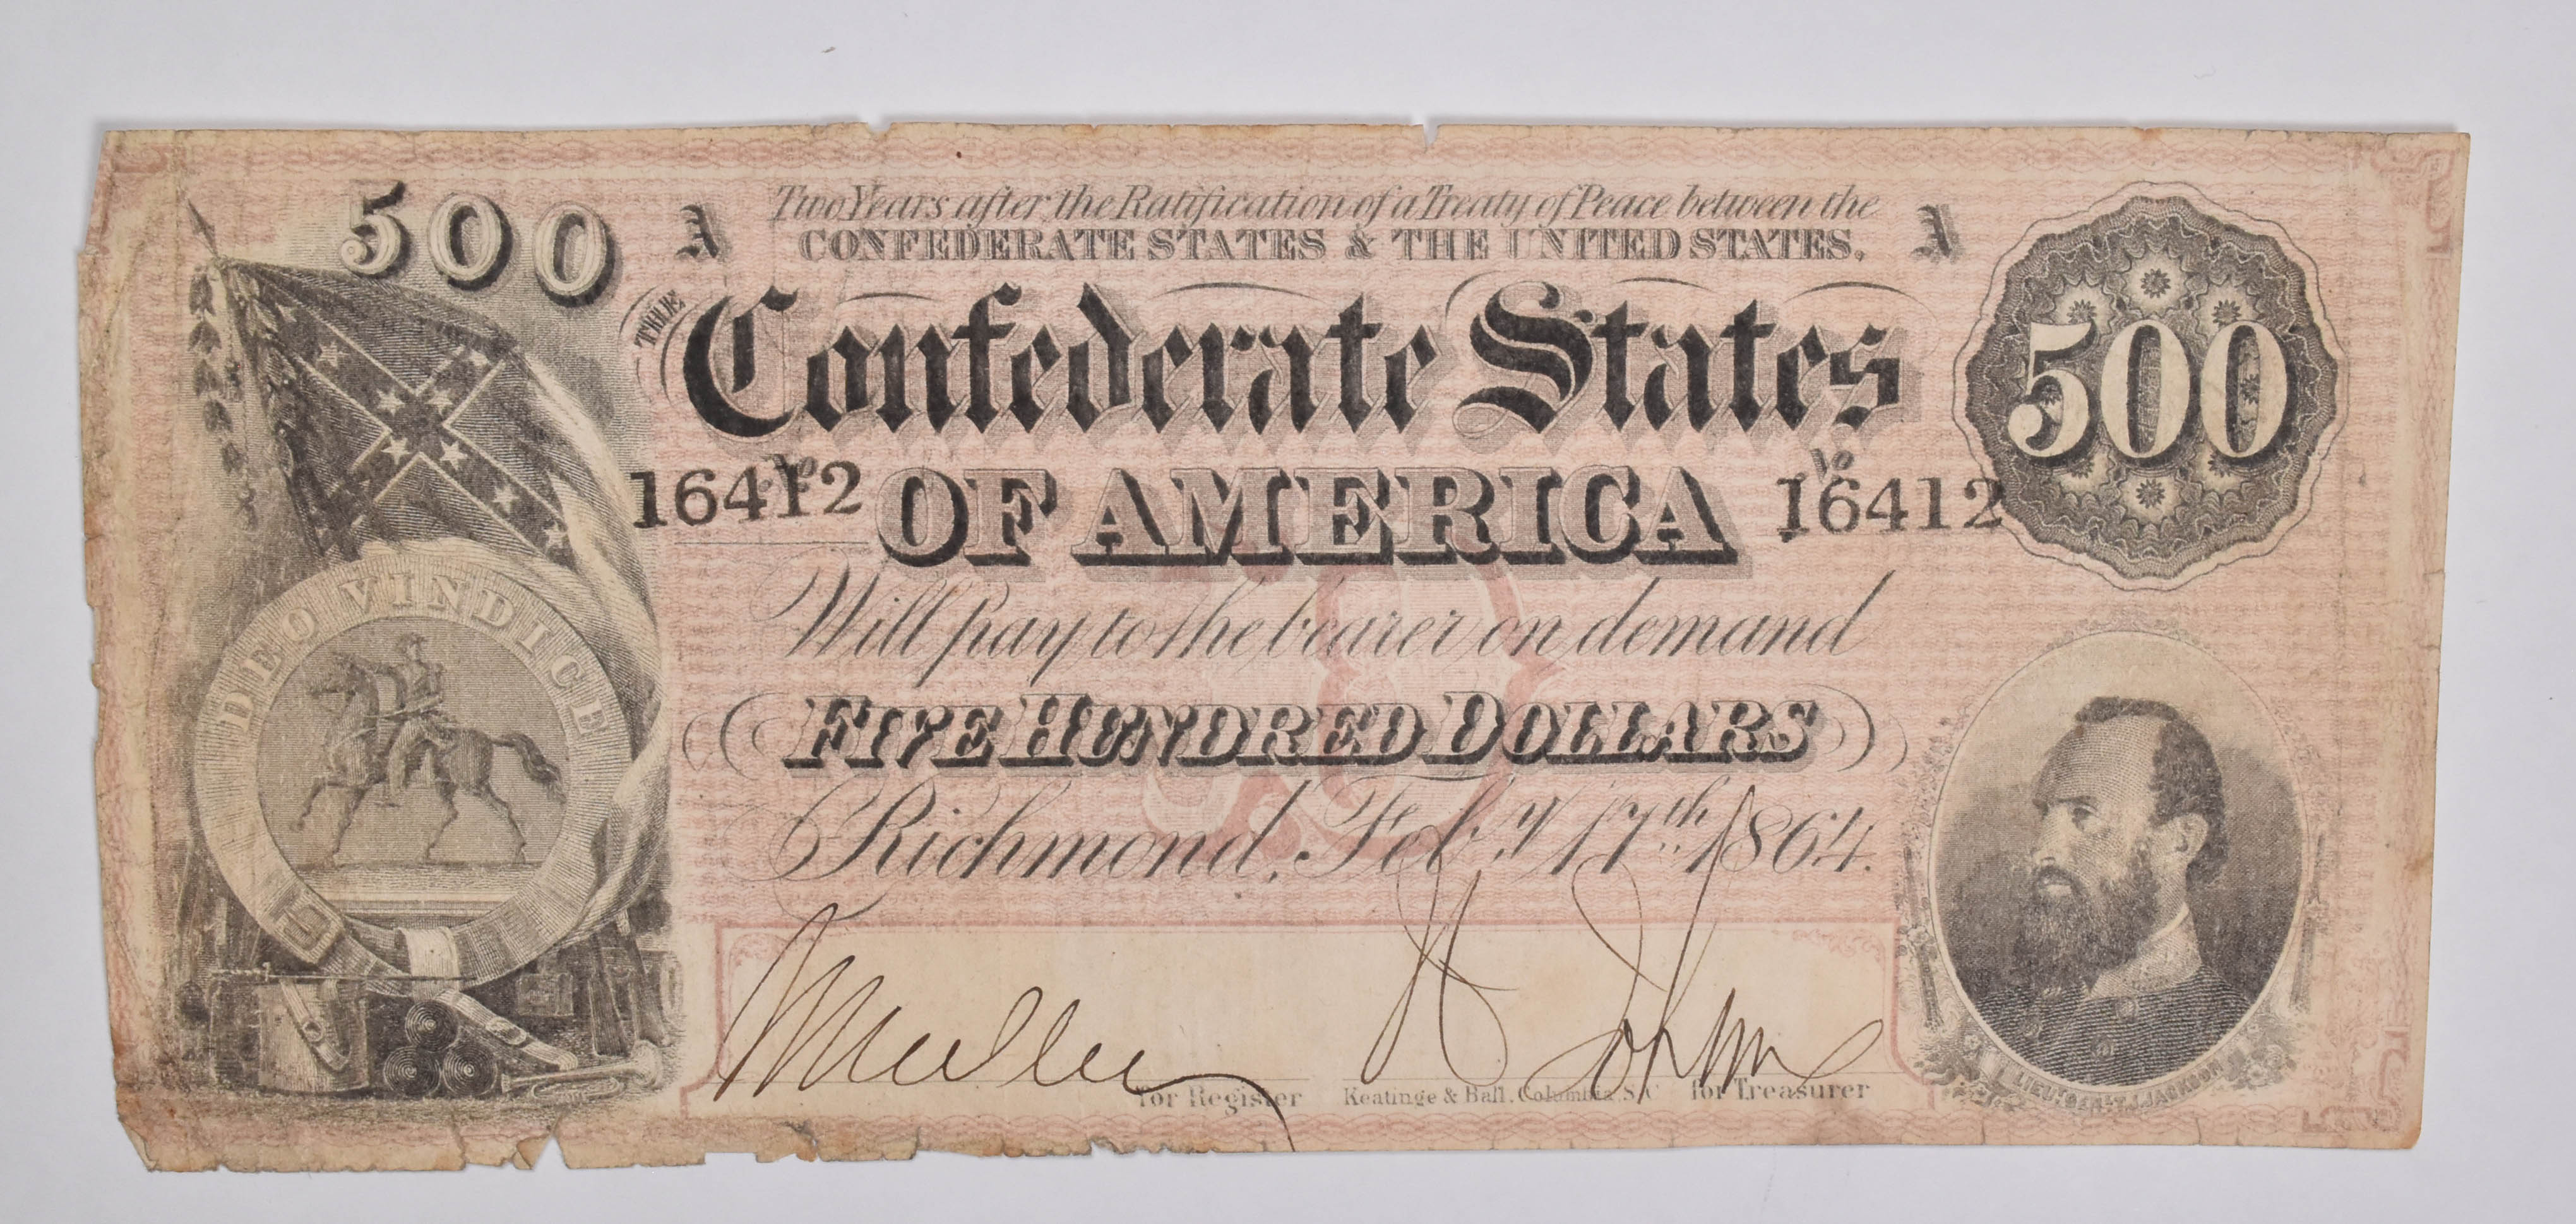 500
A Two Years after the Ratification of a Treaty of Peace between the A
CONFEDERATE STATES & THE UNITED STATES.
THE Confederate States
500
No 16412 OF AMERICA No 16412
DEO VINDICE
Will pay to the bearer on demand
FIVE HUNDRED DOLLARS
Richmond, Feby 17th 1864.
for Register Keatinge & Ball, Columbia, S.C. for Treasurer
LIEUT. GEN. T. J. JACKSON